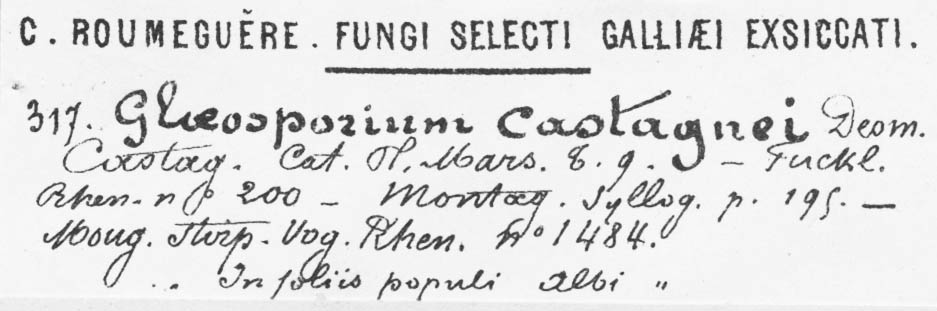 C. ROUMEGUĔRE. FUNGI SELECTI GALLIÆI EXSICCATI.
317. Glœosporium Castagnei Desm.
Castag. Cat. Pl. Mars. t. 9. – Fuckl.
Rhen. nº 200 – Montag. Syllog. p. 195. —
Moug. Stirp. Vog. Rhen. nº 1484.
„ In foliis populi albi „